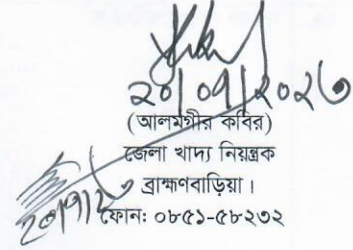 ২০/০৭/২০২৩
(আলমগীর কবির)
জেলা খাদ্য নিয়ন্ত্রক
ব্রাহ্মণবাড়িয়া।
ফোনঃ ০৮৫১-৫৮২৩২